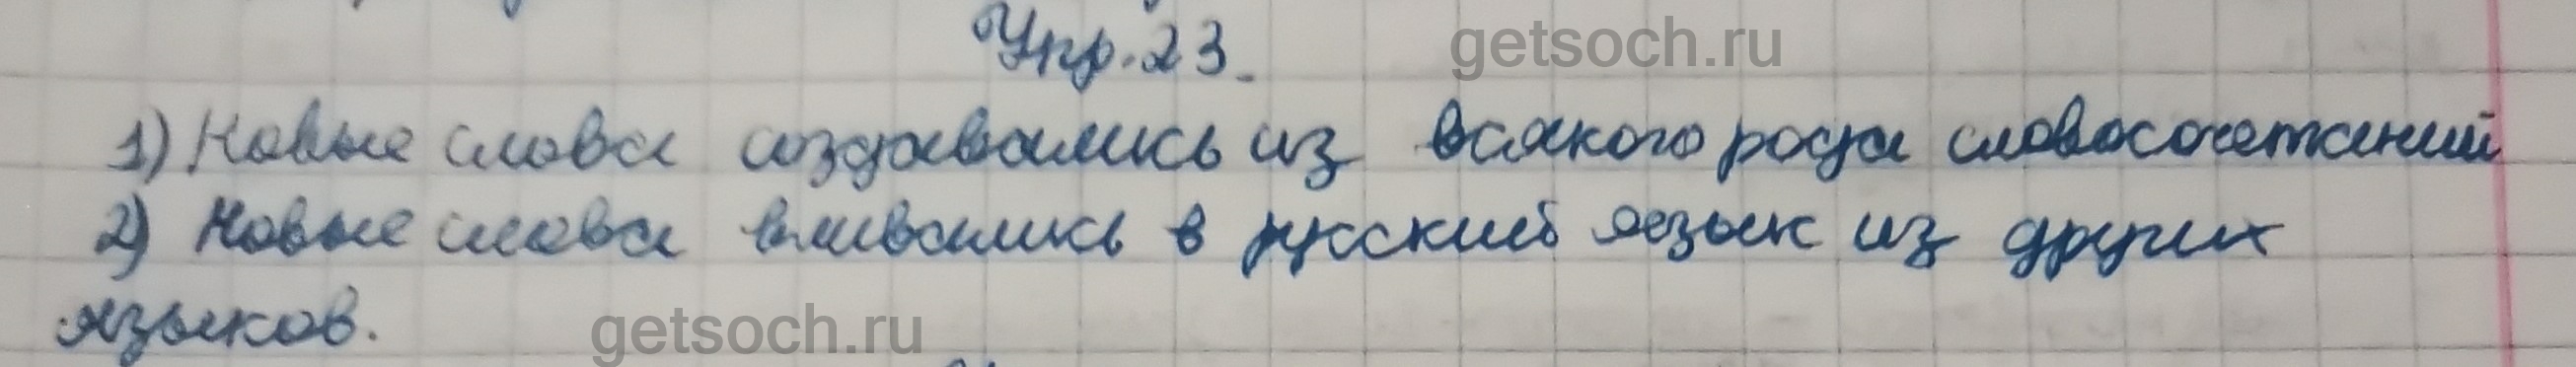 Упр. 23.
getsoch.ru
1) Новые слова создавались из всякого рода словосочетаний
2) Новые слова вливались в русский язык из других
языков.
getsoch.ru